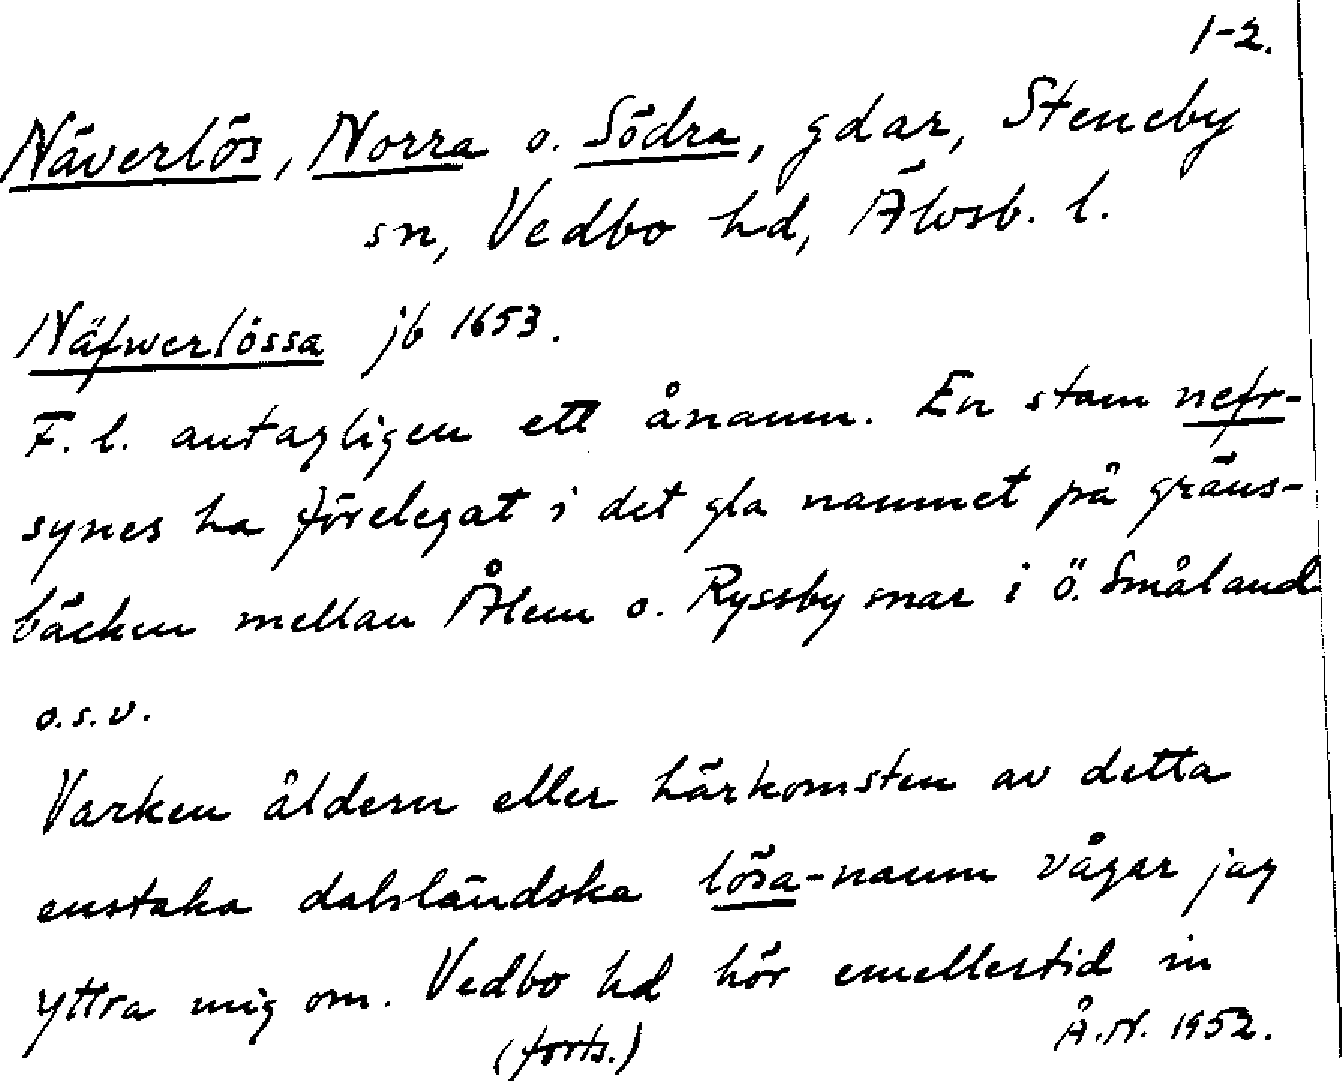 1-2.
Näverlös, Norra o. Södra, gdar, Steneby
sn, Vedbo hd, Älvsb. l.
Näfwerlössa jb 1653.
F. l. antagligen ett ånamn. En stam nefr-
synes ha förelegat i det gla namnet på gräns-
bäcken mellan Ålem o. Ryssby snar i ö. Småland
o.s.v.
Varken åldern eller härkomsten av detta
enstaka dalsländska lösa-namn vågar jag
yttra mig om. Vedbo hd hör emellertid in
(forts.) Å.N. 1952.